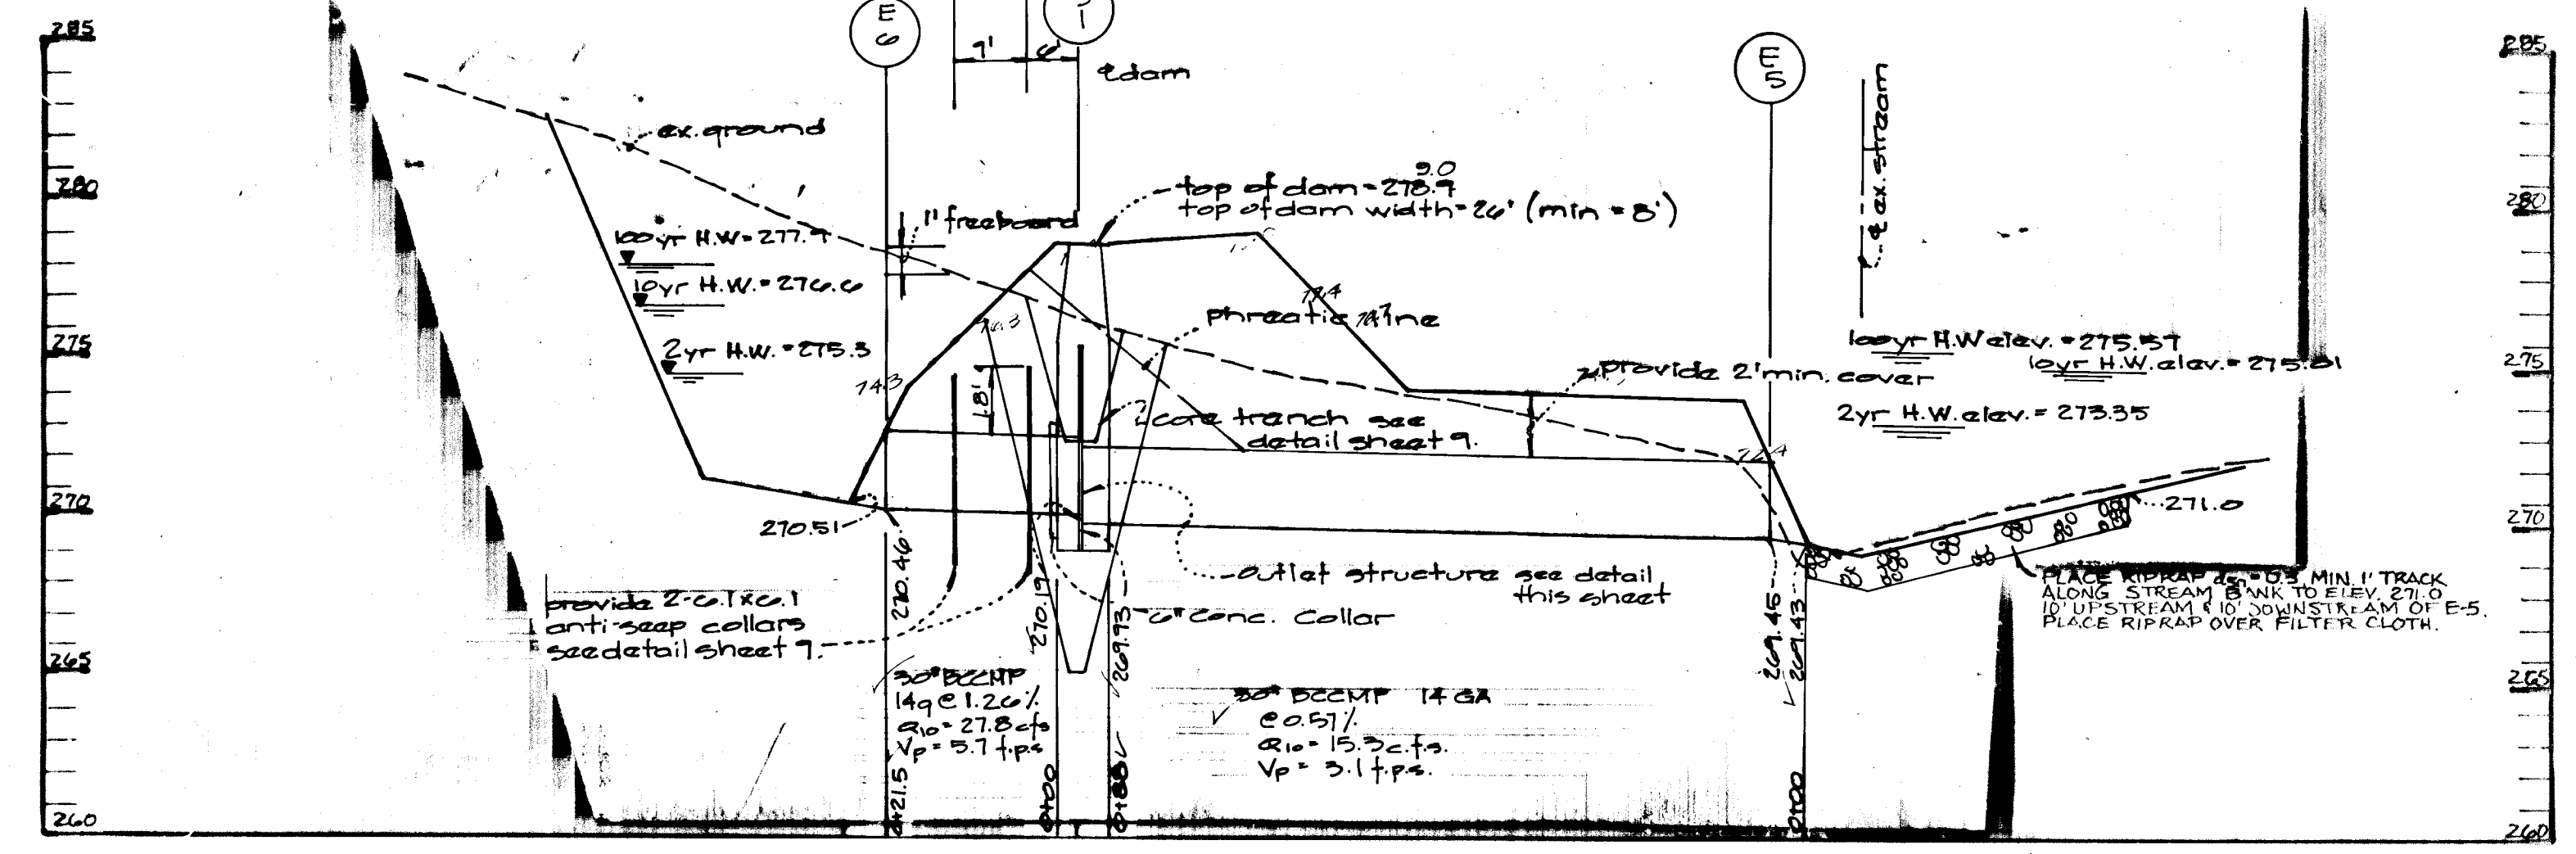 285
280
275
270
265
260
E
6
7'
6'
1
℄ dam
E
5
℄ ex. stream
285
280
275
270
265
260
ex. ground
1' freeboard
9.0
top of dam = 278.9
top of dam width = 26' (min = 8')
100yr H.W = 277.9
10yr H.W. = 276.6
2yr H.W. = 275.3
76.3
74.3
77.4
phreatic line
1.8'
core trench see
detail sheet 9.
provide 2' min. cover
72.4
100yr H.W elev. = 275.57
10yr H.W. elev. = 275.01
2yr H.W. elev. = 273.35
270.51
270.46
270.19
269.93
269.45
269.43
271.0
outlet structure see detail
this sheet
6" conc. Collar
provide 2-6.1x6.1
anti-seep collars
see detail sheet 9.
PLACE RIPRAP d50 = 0.5 MIN. 1' TRACK
ALONG STREAM BANK TO ELEV. 271.0
10' UPSTREAM & 10' DOWNSTREAM OF E-5.
PLACE RIPRAP OVER FILTER CLOTH.
30" BCCMP
14g @ 1.26%
Q10 = 27.8 cfs
Vp = 5.7 f.p.s
30" BCCMP 14 GA
@ 0.57%
Q10 = 15.3 c.f.s.
Vp = 3.1 f.p.s.
0+21.5
0+00
0+88
0+00